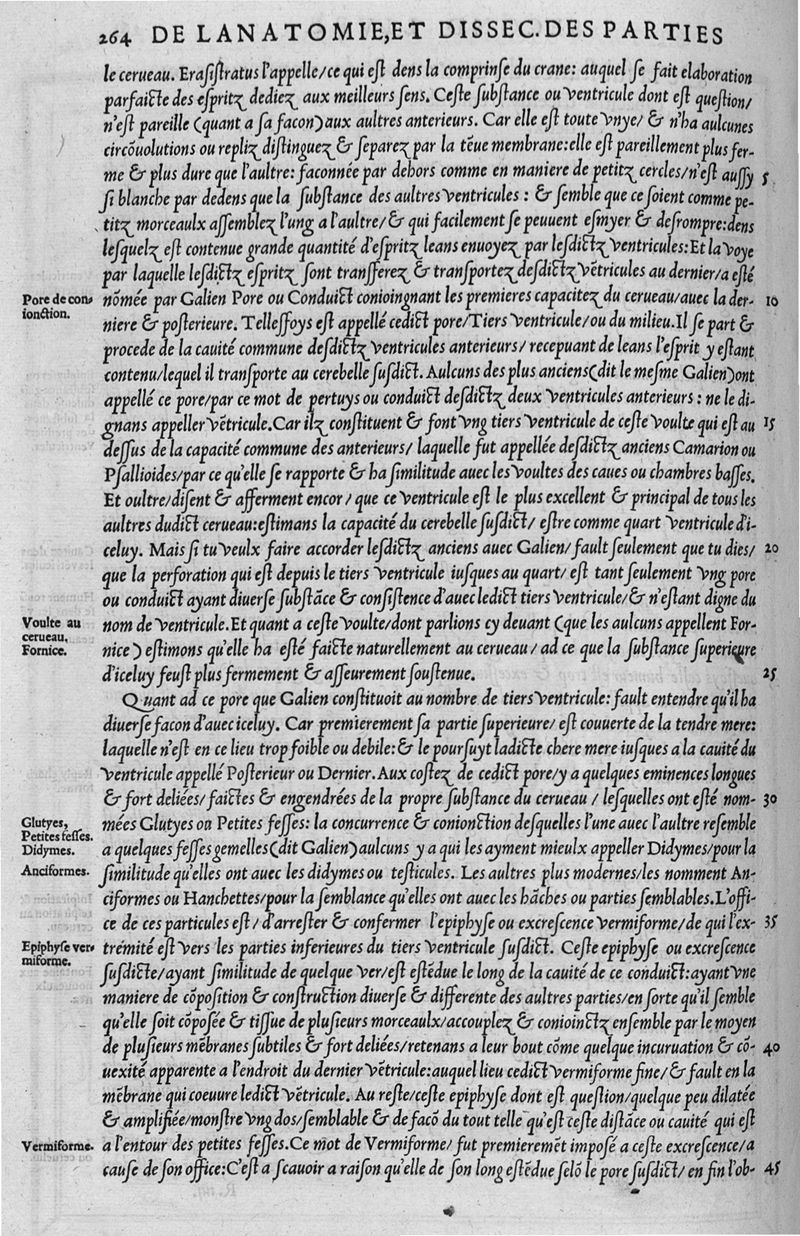 264 DE LANATOMIE, ET DISSEC. DES PARTIES
le cerueau. Erasistratus l'appelle/ce qui est dens la comprinse du crane: auquel se fait elaboration
parfaicte des espritz dediez aux meilleurs sens. Ceste substance ou ventricule dont est question/
n'est pareille (quant a sa facon) aux aultres anterieurs. Car elle est toute vnye/ & n'ha aulcunes
circōuolutions ou repliz distinguez & separez par la tēue membrane: elle est pareillement plus fer-
me & plus dure que l'aultre: faconnée par dehors comme en maniere de petitz cercles/n'est aussy 5
si blanche par dedens que la substance des aultres ventricules: & semble que ce soient comme pe-
titz morceaulx assemblez l'ung a l'aultre/& qui facilement se peuuent esmyer & desrompre: dens
lesquelz est contenue grande quantité d'espritz leans enuoyez par lesdictz ventricules: Et la voye
par laquelle lesdictz espritz sont transferez & transportez desdictz vētricules au dernier/a esté
Pore de con-
ionction.
nōmée par Galien Pore ou Conduict conioingnant les premieres capacitez du cerueau/auec la der- 10
niere & posterieure. Tellesfoys est appellé cedict pore/Tiers ventricule/ou du milieu. Il se part &
procede de la cauité commune desdictz ventricules anterieurs/recepuant de leans l'esprit y estant
contenu/lequel il transporte au cerebelle susdict. Aulcuns des plus anciens (dit le mesme Galien) ont
appellé ce pore/par ce mot de pertuys ou conduict desdictz deux ventricules anterieurs: ne le di-
gnans appeller vētricule. Car ilz constituent & font vng tiers ventricule de ceste voulte qui est au 15
dessus de la capacité commune des anterieurs/laquelle fut appellée desdictz anciens Camarion ou
Psallioides/par ce qu'elle se rapporte & ha similitude auec les voultes des caues ou chambres basses.
Et oultre/disent & afferment encor/que ce ventricule est le plus excellent & principal de tous les
aultres dudict cerueau: estimans la capacité du cerebelle susdict/estre comme quart ventricule d'i-
celuy. Mais si tu veulx faire accorder lesdictz anciens auec Galien/fault seulement que tu dies/ 20
que la perforation qui est depuis le tiers ventricule iusques au quart/est tant seulement vng pore
ou conduict ayant diuerse substāce & consistence d'auec ledict tiers ventricule/& n'estant digne du
Voulte au
cerueau,
Fornice.
nom de ventricule. Et quant a ceste voulte/dont parlions cy deuant (que les aulcuns appellent For-
nice) estimons qu'elle ha esté faicte naturellement au cerueau/ad ce que la substance superieure
d'iceluy feust plus fermement & asseurement soustenue. 25
Quant ad ce pore que Galien constituoit au nombre de tiers ventricule: fault entendre qu'il ha
diuerse facon d'auec iceluy. Car premierement sa partie superieure/est couuerte de la tendre mere:
laquelle n'est en ce lieu trop foible ou debile: & le poursuyt ladicte chere mere iusques a la cauité du
ventricule appellé Posterieur ou Dernier. Aux costez de cedict pore/y a quelques eminences longues
& fort deliées/faictes & engendrées de la propre substance du cerueau/lesquelles ont esté nom- 30
Glutyes,
Petites fesses.
Didymes.
mées Glutyes ou Petites fesses: la concurrence & conionction desquelles l'une auec l'aultre resemble
a quelques fesses gemelles (dit Galien) aulcuns y a qui les ayment mieulx appeller Didymes/pour la
Anciformes.
similitude qu'elles ont auec les didymes ou testicules. Les aultres plus modernes/les nomment An-
ciformes ou Hanchettes/pour la semblance qu'elles ont auec les hāches ou parties semblables. L'offi-
ce de ces particules est/d'arrester & confermer l'epiphyse ou excrescence vermiforme/de qui l'ex- 35
Epiphyse ver-
miforme.
trémité est vers les parties inferieures du tiers ventricule susdict. Ceste epiphyse ou excrescence
susdicte/ayant similitude de quelque ver/est estēdue le long de la cauité de ce conduict: ayant vne
maniere de cōposition & construction diuerse & differente des aultres parties/en sorte qu'il semble
qu'elle soit cōposée & tissue de plusieurs morceaulx/accouplez & conioinctz ensemble par le moyen
de plusieurs mēbranes subtiles & fort deliées/retenans a leur bout cōme quelque incuruation & cō- 40
uexité apparente a l'endroit du dernier vētricule: auquel lieu cedict vermiforme fine/& fault en la
mēbrane qui coeuure ledict vētricule. Au reste/ceste epiphyse dont est question/quelque peu dilatée
& amplifiée/monstre vng dos/semblable & de facō du tout telle qu'est ceste distāce ou cauité qui est
Vermiforme.
a l'entour des petites fesses. Ce mot de Vermiforme/fut premieremēt imposé a ceste excrescence/a
cause de son office: C'est a scauoir a raison qu'elle de son long estēdue selō le pore susdict/en fin l'ob- 45